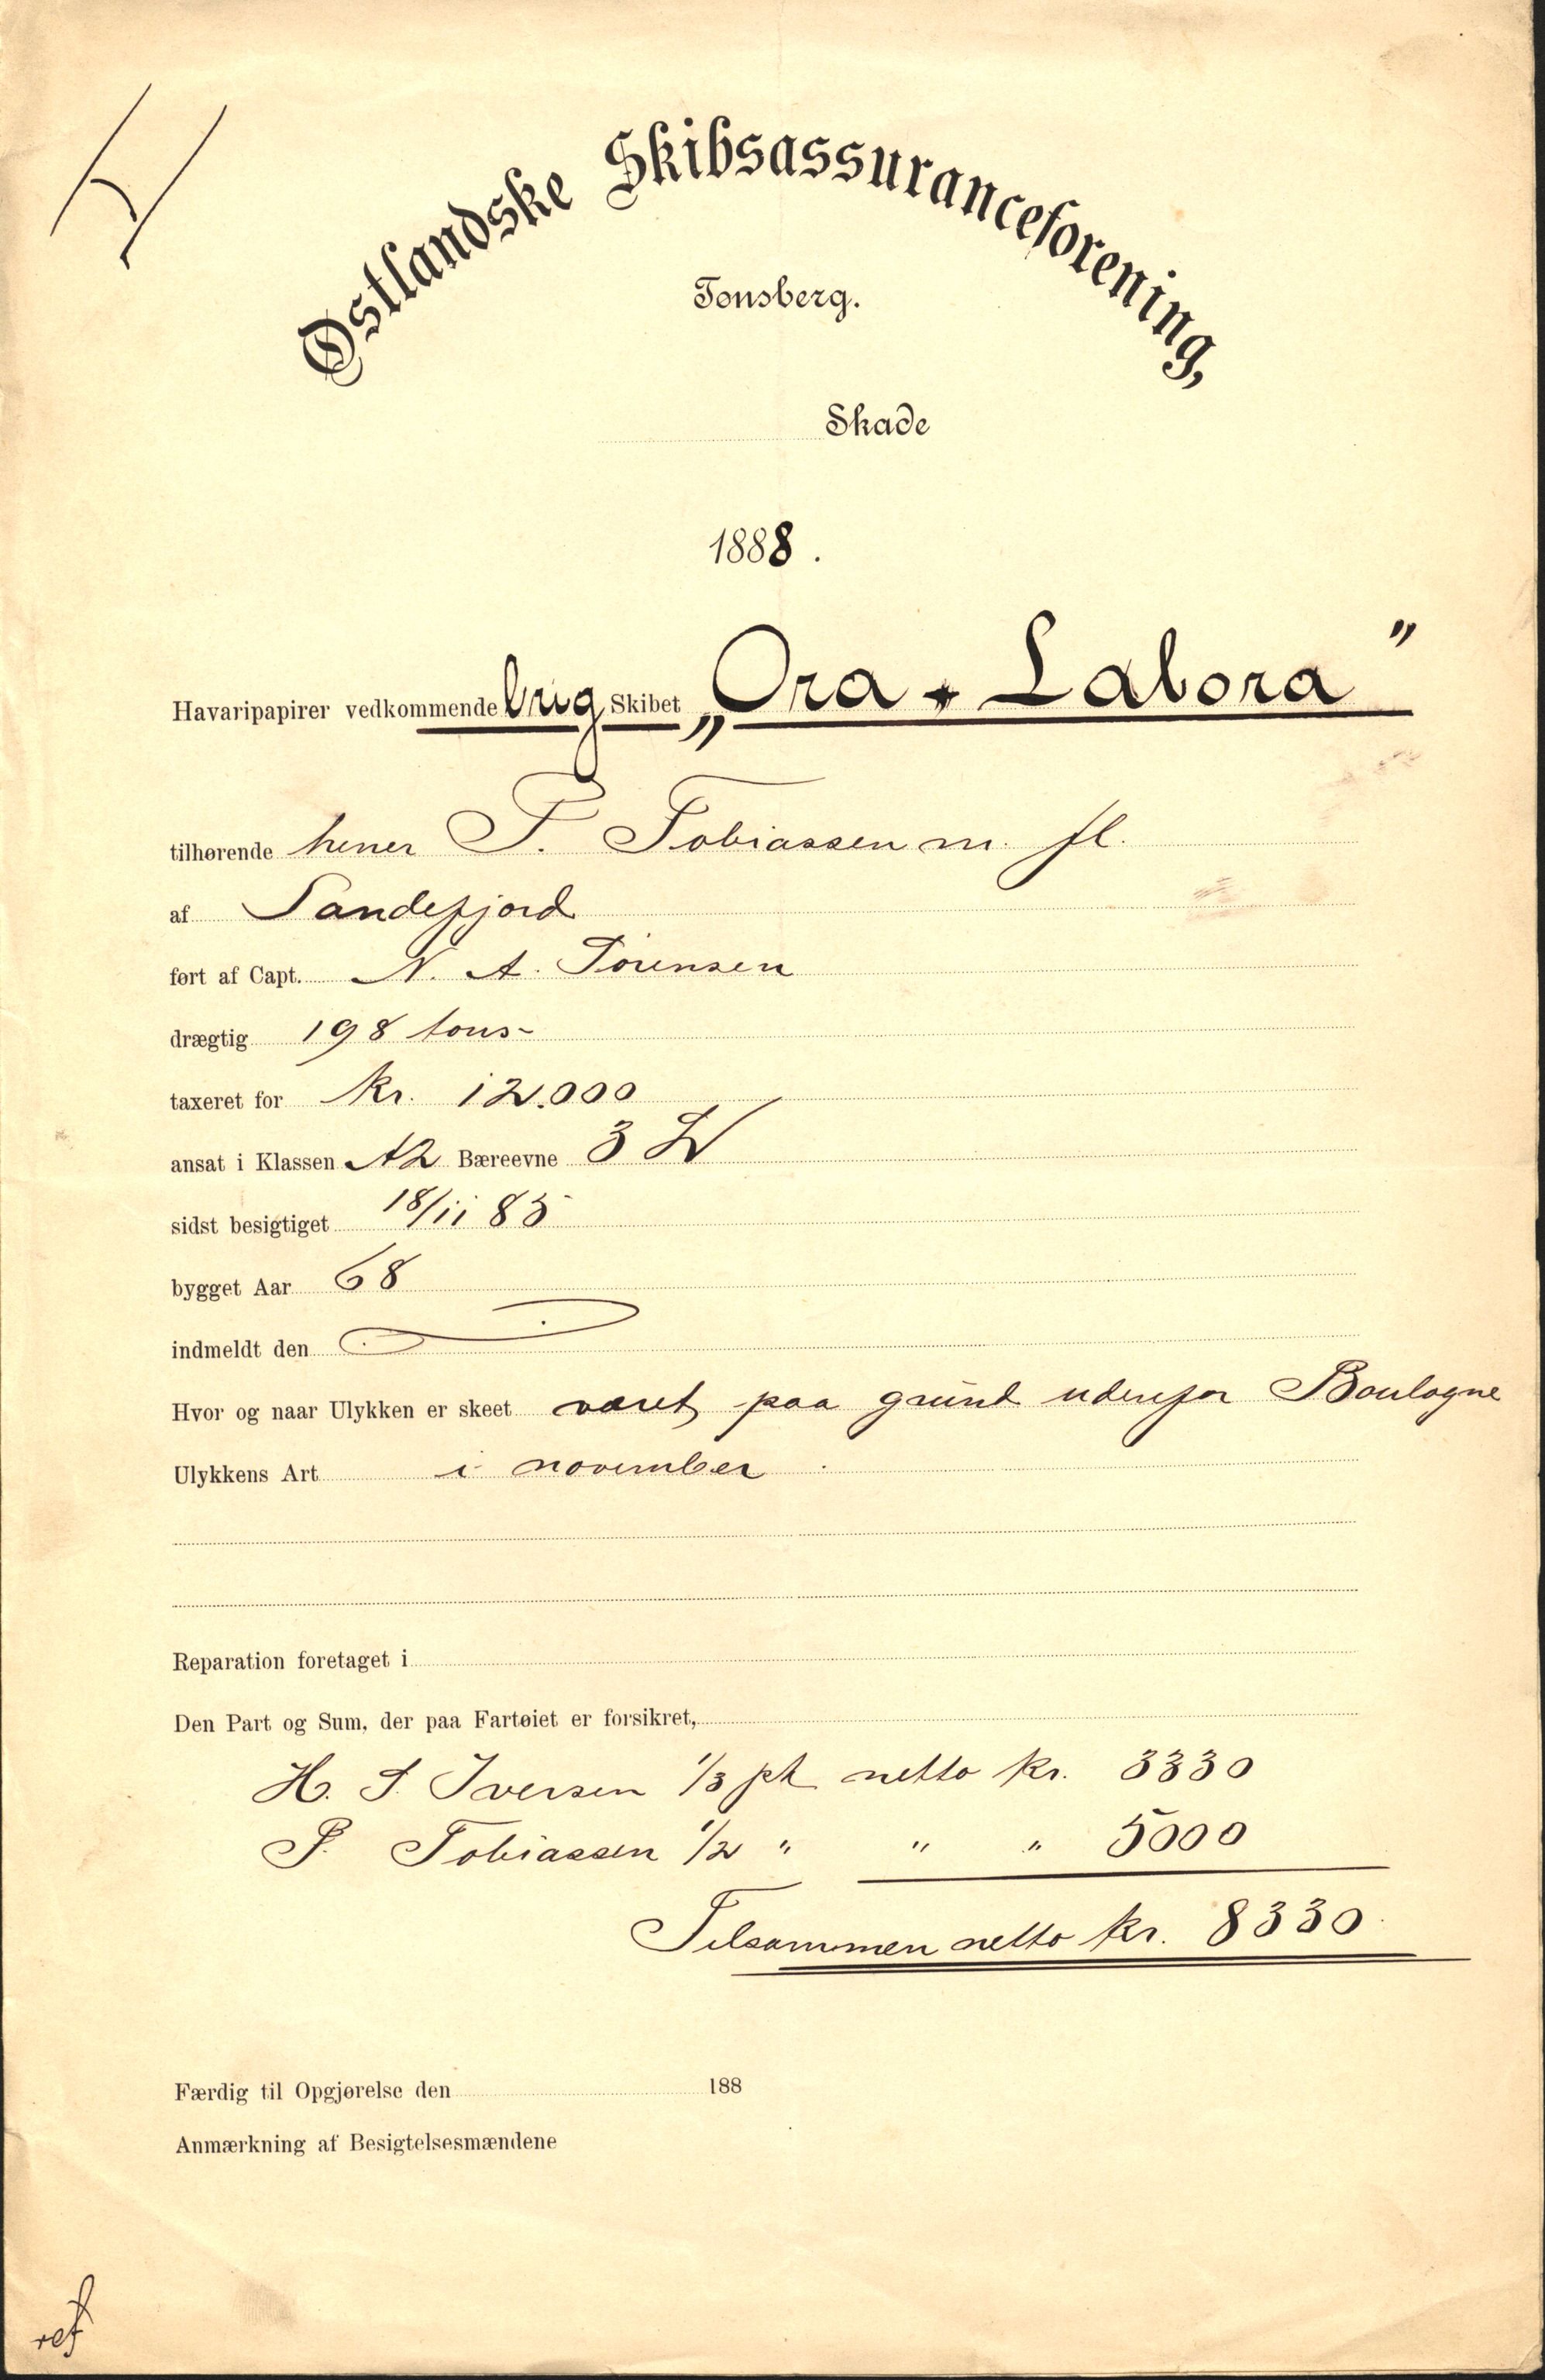 H
Østlandske Skibsassuranceforening,
Tønsberg.
Skade
1888.
Havaripapirer vedkommende brig Skibet „Ora + Labora"
tilhørende herrer P. Tobiassen m. fl.
af Sandefjord
ført af Capt. N. A. Sørensen
drægtig 198 tons
taxeret for Kr. 12.000
ansat i Klassen A2 Bæreevne 3 L
sidst besigtiget 18/11 85
bygget Aar 68
indmeldt den
Hvor og naar Ulykken er skeet været paa grund udenfor Boulogne
Ulykkens Art i november
Reparation foretaget i
Den Part og Sum, der paa Fartøiet er forsikret,
H. S. Iversen 1/3 pt netto Kr. 3330
P. Tobiassen 1/2 " " " 5000
Tilsammen netto Kr. 8330
Færdig til Opgjørelse den 188
Anmærkning af Besigtelsesmændene
ref